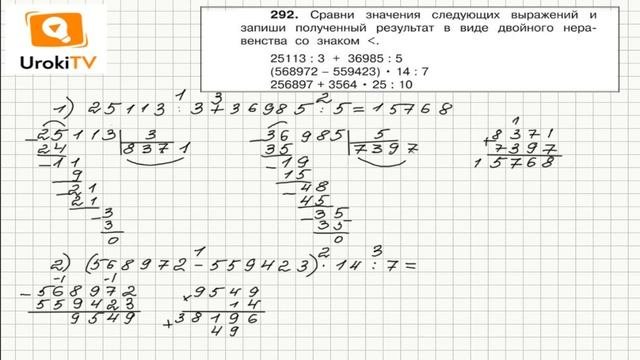 292. Сравни значения следующих выражений и
запиши полученный результат в виде двойного нера-
венства со знаком <.
25113 : 3 + 36985 : 5
(568972 – 559423) • 14 : 7
256897 + 3564 • 25 : 10
UrokiTV
1 3 2
1) 25113 : 3 + 36985 : 5 = 15768
25113 3
24 8371
-11
9
-21
21
-3
3
0
-36985 5
35 7397
-19
15
-48
45
-35
35
0
1
+8371
7397
15768
1 2 3
2) (568972 - 559423) · 14 : 7 =
-1 -1
-568972
559423
9549
×9549
14
+38196
49